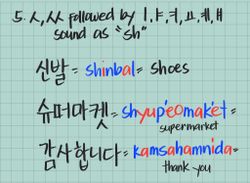 5. ㅅ,ㅆ followed by ㅣ,ㅑ,ㅕ,ㅛ,ㅖ,ㅒ
sound as "sh"
신발 = shinbal = shoes
슈퍼마켓 = shyup'eomak'et =
supermarket
감사합니다 = kamsahamnida =
thank you